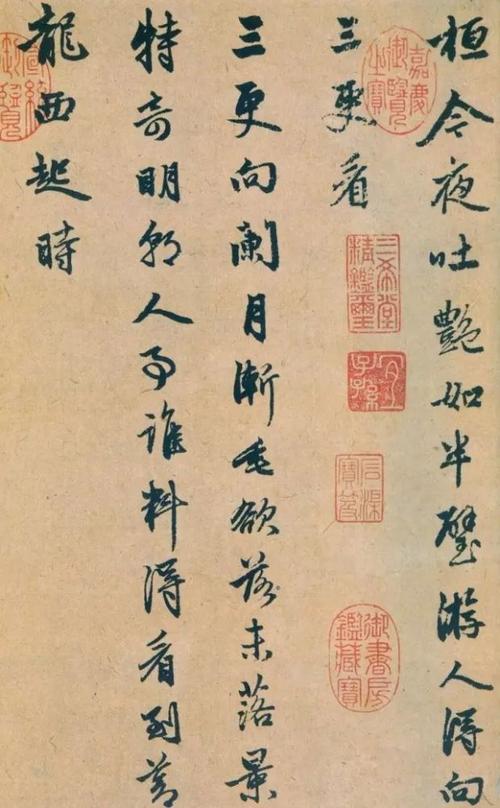 桓今夜吐艷如半璧游人得向
三更看
三更向闌月漸垂欲落未落景
特奇明朝人事誰料得看到蒼
龍西起時
嘉慶御覽之寶
三希堂精鑑璽
宜子孫
石渠寶笈
御書房鑑藏寶
宣統御覽